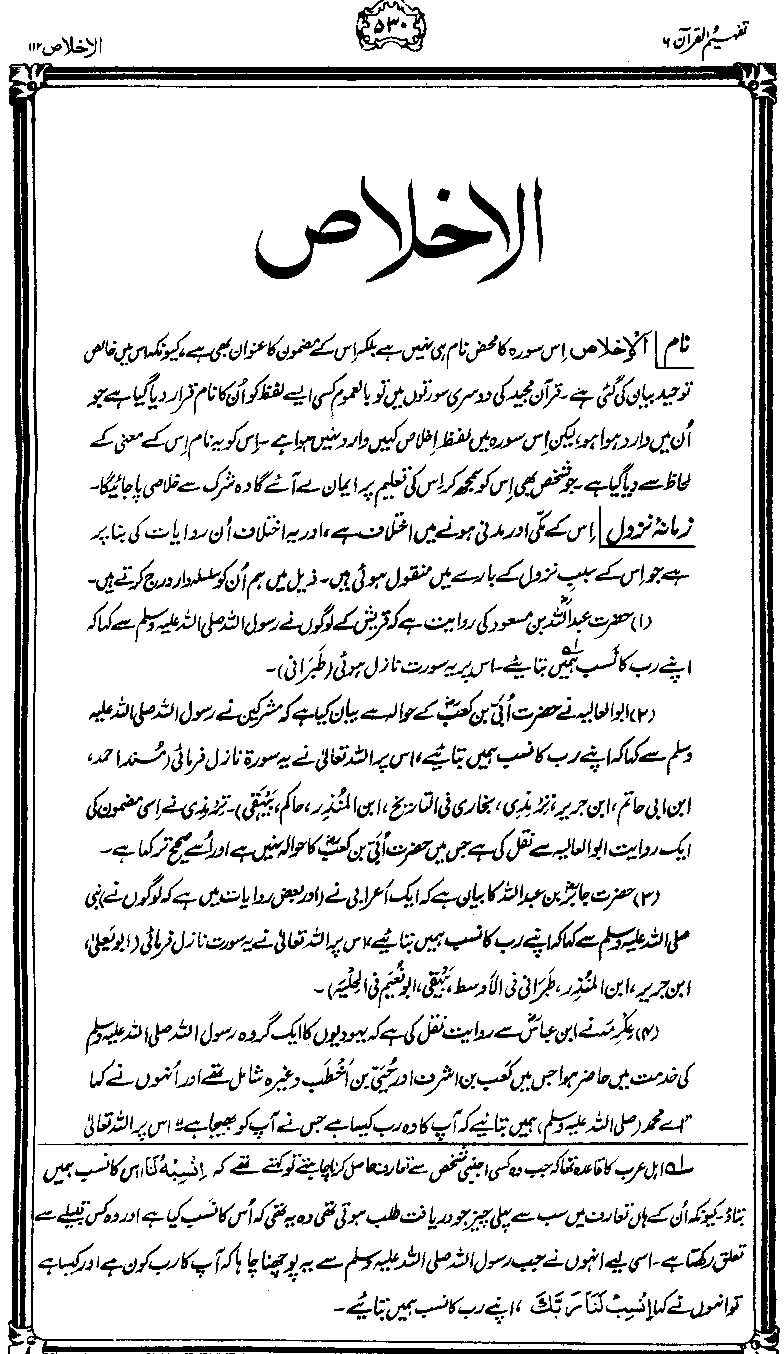 تفہیم القرآن ۶
۵۳۰
الاخلاص ۱۱۲
الاخلاص
نام | اَلاِخلاص اِس سورہ کا محض نام ہی نہیں ہے بلکہ اِس کے مضمون کا عنوان بھی ہے، کیونکہ اس میں خالص
توحید بیان کی گئی ہے۔ قرآن مجید کی دوسری سورتوں میں تو بالعموم کسی ایسے لفظ کو اُن کا نام قرار دیا گیا ہے جو
اُن میں وارد ہوا ہو، لیکن اِس سورہ میں لفظ اِخلاص کہیں وارد نہیں ہوا ہے۔ اِس کو یہ نام اِس کے معنی کے
لحاظ سے دیا گیا ہے۔ جو شخص بھی اِس کو سمجھ کر اِس کی تعلیم پر ایمان لے آئے گا وہ شرک سے خلاصی پا جائیگا۔
زمانۂ نزول | اِس کے مکّی اور مدنی ہونے میں اختلاف ہے، اور یہ اختلاف اُن روایات کی بنا پر
ہے جو اِس کے سببِ نزول کے بارے میں منقول ہوئی ہیں۔ ذیل میں ہم اُن کو سلسلہ وار درج کرتے ہیں۔
(۱) حضرت عبداللہ بن مسعودؓ کی روایت ہے کہ قریش کے لوگوں نے رسول اللہ صلی اللہ علیہ وسلم سے کہا کہ
اپنے رب کا نسب ہمیں بتائیے۱؎۔ اس پر یہ سورت نازل ہوئی (طَبَرانی)۔
(۲) ابوالعالیہ نے حضرت اُبَیّ بن کعبؓ کے حوالہ سے بیان کیا ہے کہ مشرکین نے رسول اللہ صلی اللہ علیہ
وسلم سے کہا کہ اپنے رب کا نسب ہمیں بتائیے، اس پر اللہ تعالیٰ نے یہ سورۃ نازل فرمائی (مُسند احمد،
ابن ابی حاتم، ابن جریر، تِرْمِذی، بخاری فی التاریخ، ابن المُنْذِر، حاکم، بَیْہَقی)۔ تِرْمِذی نے اِسی مضمون کی
ایک روایت ابوالعالیہ سے نقل کی ہے جس میں حضرت اُبَیّ بن کعبؓ کا حوالہ نہیں ہے اور اُسے صحیح تر کہا ہے۔
(۳) حضرت جابرؓ بن عبداللہ کا بیان ہے کہ ایک اَعرابی نے (اور بعض روایات میں ہے کہ لوگوں نے) نبی
صلی اللہ علیہ وسلم سے کہا کہ اپنے رب کا نسب ہمیں بتائیے، اس پر اللہ تعالیٰ نے یہ سورت نازل فرمائی (ابو یَعلیٰ،
ابن جریر، ابن المُنْذِر، طَبَرانی فی الاَوسط، بَیْہَقی، ابو نُعَیم فی الحِلْیَہ)۔
(۴) عِکْرِمَہ نے ابن عباسؓ سے روایت نقل کی ہے کہ یہودیوں کا ایک گروہ رسول اللہ صلی اللہ علیہ وسلم
کی خدمت میں حاضر ہوا جس میں کعب بن اشرف اور حُیَیّ بن اَخْطَب وغیرہ شامل تھے اور اُنہوں نے کہا
"اے محمد (صلی اللہ علیہ وسلم)، ہمیں بتائیے کہ آپ کا وہ رب کیسا ہے جس نے آپ کو بھیجا ہے" اس پر اللہ تعالیٰ
۱؎ اہل عرب کا قاعدہ تھا کہ جب وہ کسی اجنبی شخص سے تعارف حاصل کرنا چاہتے تو کہتے تھے کہ اِنْسِبْهُ لَنَا، اس کا نسب ہمیں
بتاؤ۔ کیونکہ اُن کے ہاں تعارف میں سب سے پہلی چیز جو دریافت طلب ہوتی تھی وہ یہ تھی کہ اُس کا نسب کیا ہے اور وہ کس قبیلے سے
تعلق رکھتا ہے۔ اسی لیے انہوں نے جب رسول اللہ صلی اللہ علیہ وسلم سے یہ پوچھنا چاہا کہ آپ کا رب کون ہے اور کیسا ہے
تو انہوں نے کہا اِنْسِبْ لَنَا رَبَّكَ، اپنے رب کا نسب ہمیں بتائیے۔